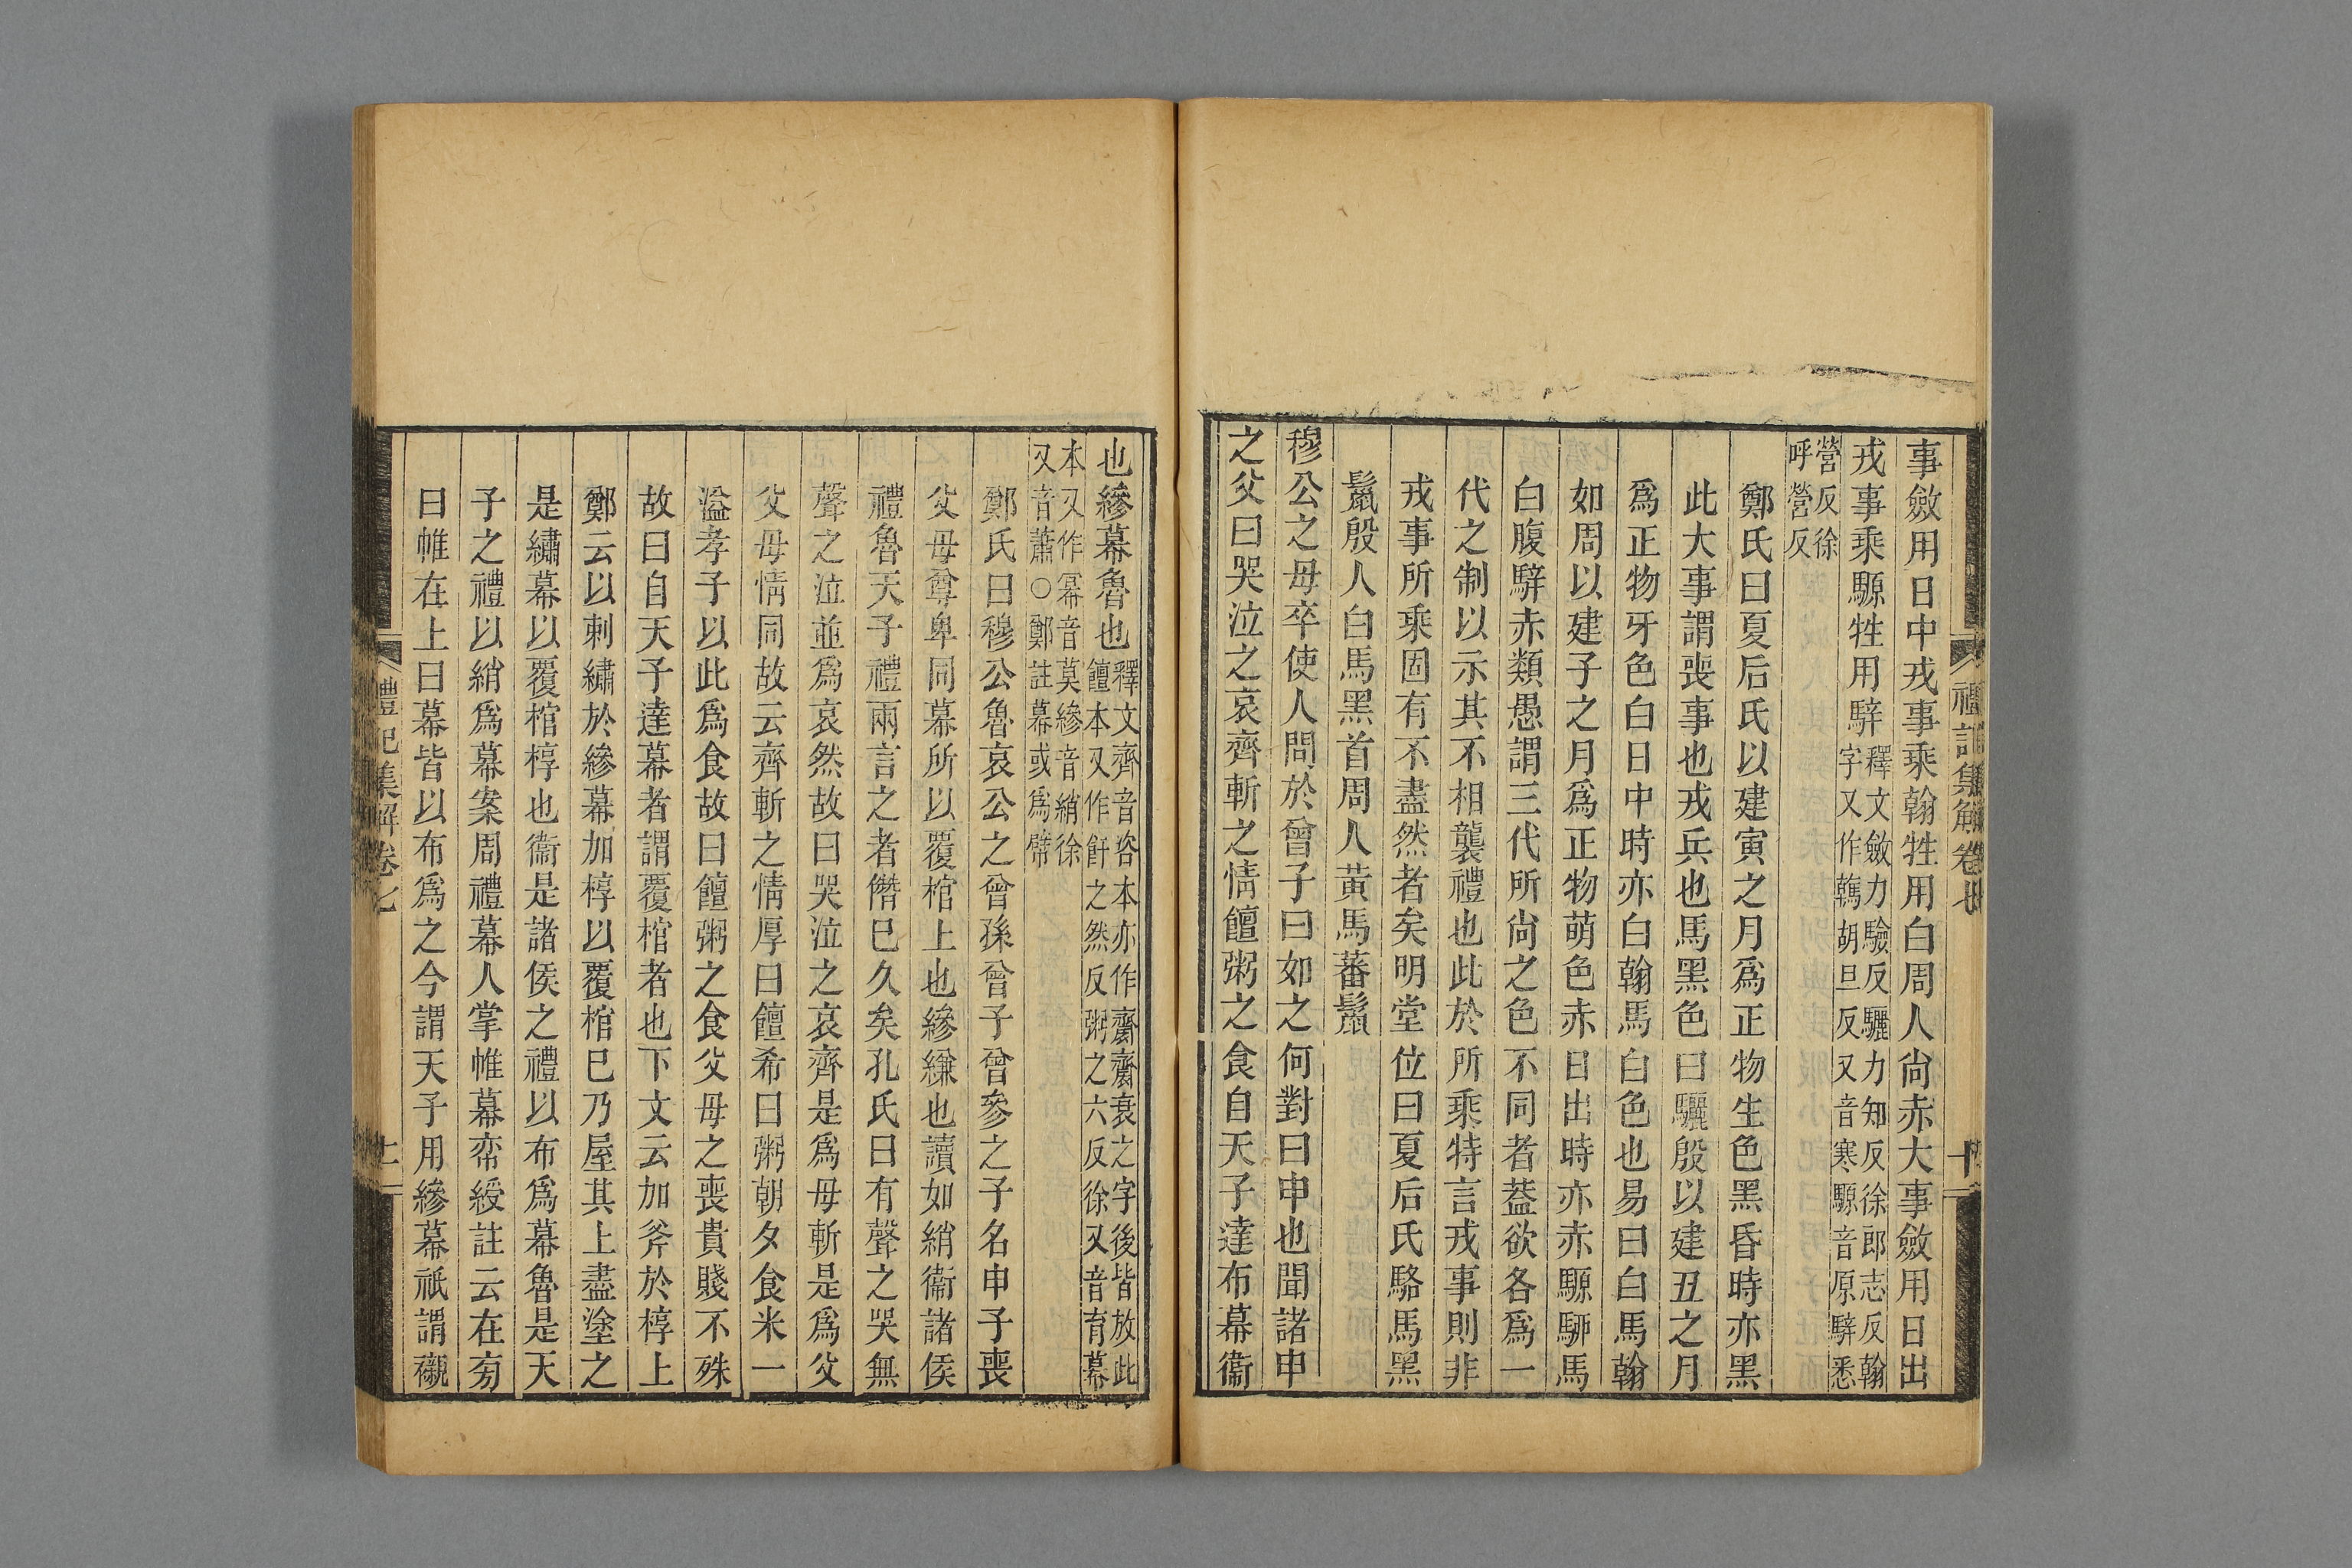 禮記集解卷七
十
事斂用日中戎事乘翰牲用白周人尙赤大事斂用日出
戎事乘騵牲用騂釋文斂力驗反驪力知反徐郎志反翰
字又作鶾胡旦反又音寒騵音原騂悉
營反徐
呼營反
鄭氏曰夏后氏以建寅之月爲正物生色黑昏時亦黑
此大事謂喪事也戎兵也馬黑色曰驪殷以建丑之月
爲正物牙色白日中時亦白翰馬白色也易曰白馬翰
如周以建子之月爲正物萌色赤日出時亦赤騵駵馬
白腹騂赤類愚謂三代所尙之色不同者蓋欲各爲一
代之制以示其不相襲禮也此於所乘特言戎事則非
戎事所乘固有不盡然者矣明堂位曰夏后氏駱馬黑
鬣殷人白馬黑首周人黃馬蕃鬣
穆公之母卒使人問於曾子曰如之何對曰申也聞諸申
之父曰哭泣之哀齊斬之情饘粥之食自天子達布幕衞
也縿幕魯也釋文齊音咨本亦作齌齌衰之字後皆放此
饘本又作飦之然反粥之六反徐又音育幕
本又作冪音莫縿音綃徐
又音蕭○鄭註幕或爲幦
鄭氏曰穆公魯哀公之曾孫曾子曾參之子名申子喪
父母尊卑同幕所以覆棺上也縿縑也讀如綃衞諸侯
禮魯天子禮兩言之者僭已久矣孔氏曰有聲之哭無
聲之泣並爲哀然故曰哭泣之哀齊是爲母斬是爲父
父母情同故云齊斬之情厚曰饘希曰粥朝夕食米一
溢孝子以此爲食故曰饘粥之食父母之喪貴賤不殊
故曰自天子達幕者謂覆棺者也下文云加斧於椁上
鄭云以刺繡於縿幕加椁以覆棺已乃屋其上盡塗之
是繡幕以覆棺椁也衞是諸侯之禮以布爲幕魯是天
子之禮以綃爲幕案周禮幕人掌帷幕帟綬註云在旁
曰帷在上曰幕皆以布爲之今謂天子用縿幕祇謂襯
禮記集解卷七
十一